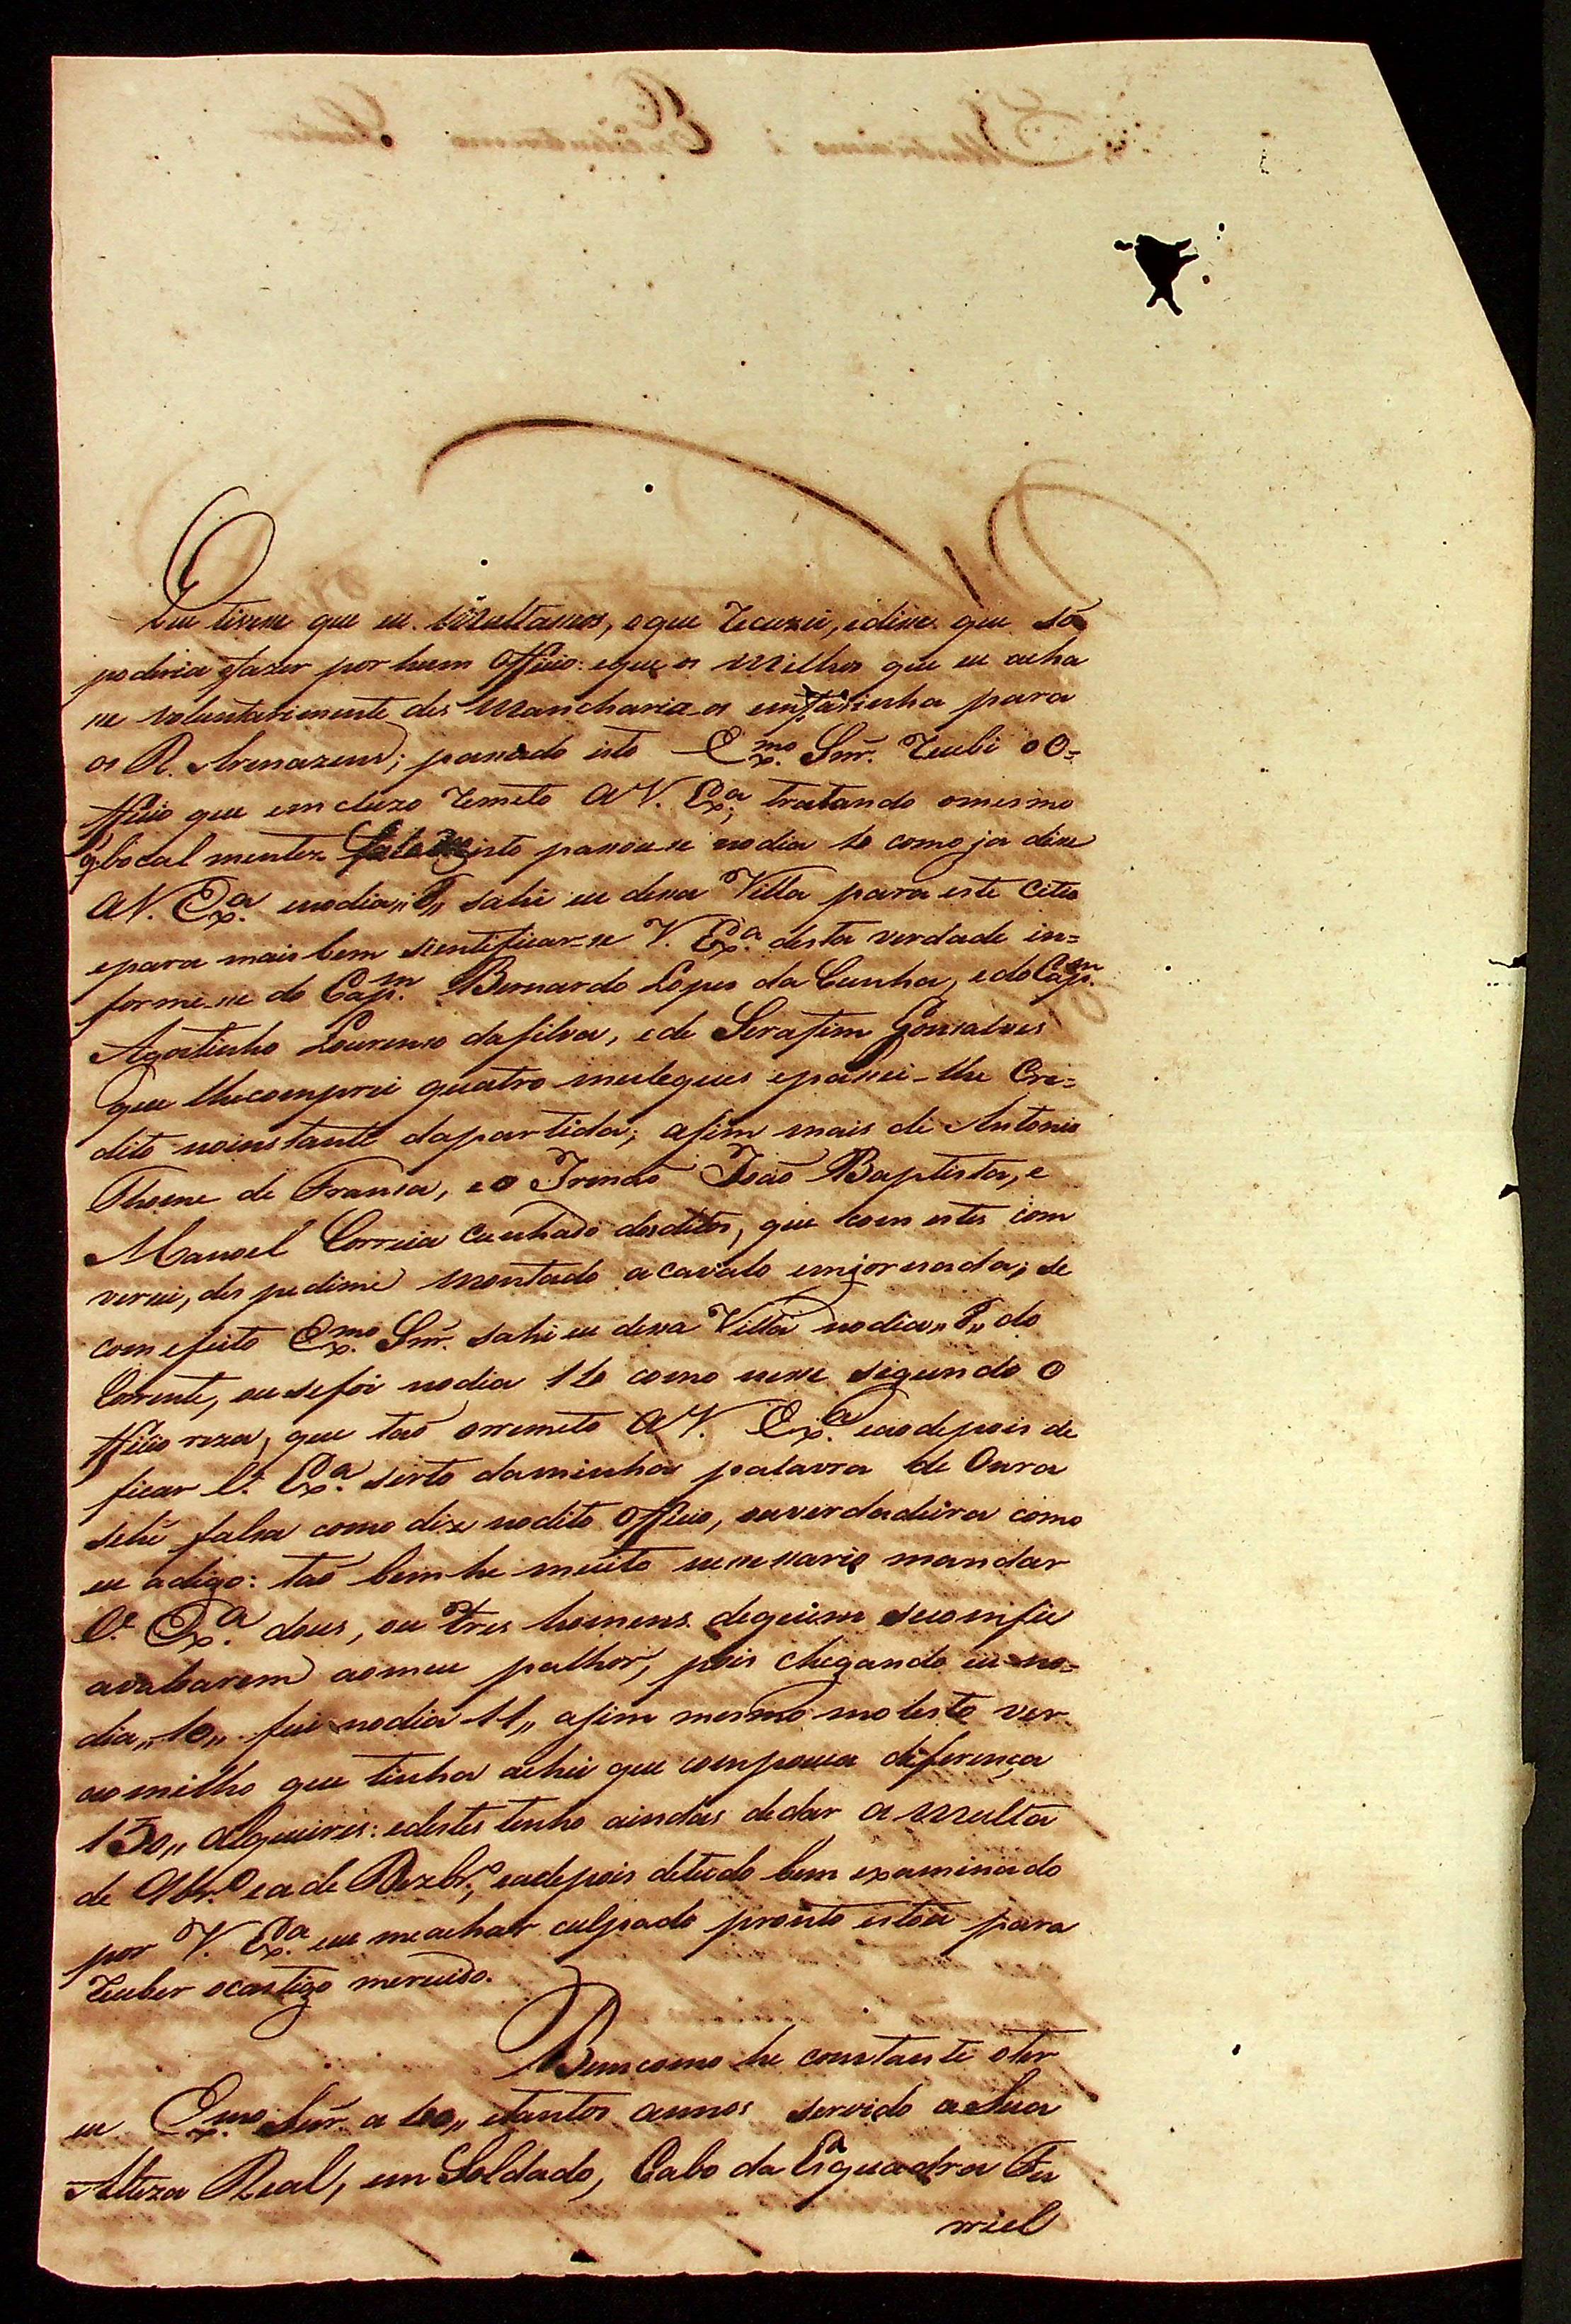 que tivesse que eu Multasses, o que Recuzei, e disse que só
poderia fazer por hum Officio: e que os Milhos que eu acha
se voluntarimente des Mancharia os em farinha para
os R. Armazens; passado isto Exmo. Snr. Recebi o O=
fficio que em cluzo Remeto a V. Exa; tratando o mesmo
q. bocal mente isto passou-se no dia 10 como ja disse
a V. Exa. e no dia,, 8,, sahi eu dessa Villa para este Citio
e para mais bem sientificar-se V. Exa. desta verdade in=
forme-se do Capm. Bernardo Lopes da Cunha, e do Capm.
Agostinho Lourenso da Silva, e de Serafim Gonsalves
que lhe comprei quatro muleques e passei-lhe Cre=
dito no instante da partida; asim mais de Antonio
Thome de Fransa, e o Irmão João Baptista, e
Manoel Correia cunhado dos ditos, que com estes com
versei, des pedime montado a cavalo em jornada; se
com efeito Exmo. Snr. sahi eu dessa Villa no dia,, 8,, do
Corrente, ou se foi no dia 10 como nesse segundo O
fficio reza, que tão o rremeto a V. Exa. e ao depois de
ficar V. Exa. serto da minha palavra de Onra
se he falsa como diz no dito Officio, ou verdadeira como
eu a digo: tão bem he muito nesessario mandar
V. Exa. dous, ou tres homens de quem se confie
avaluarem ao meu palhor, pois chegando eu no=
dia,, 10,, fui no dia 11,, asim mesmo molesto ver
ao milho que tinha achei que com pouca diferença
130,, alqueires: e destes tenho aindas de dar a Multa
de 9br.o e a de Dezbr.o, e a depois de tudo bem examinado
por V. Exa. eu me achar culpado pronto estou para
Reseber o castigo meresido.
Bem como he constante o ter
eu Exmo. Snr. a 20,, e tantos annos servido a Sua
Alteza Real, em Soldado, Cabo da Esquadra Fu
rriel